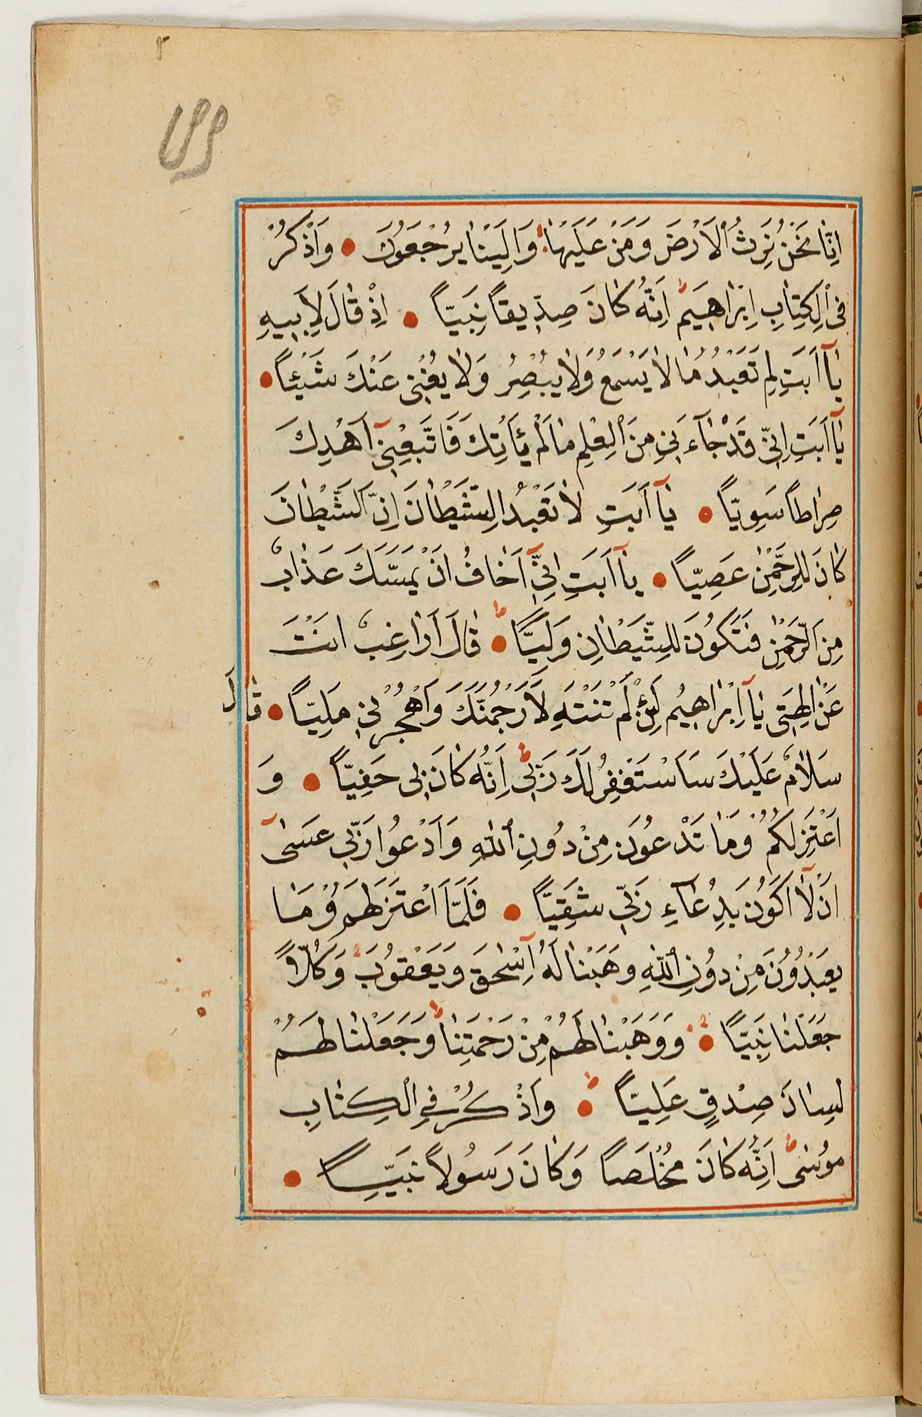 اِنَّا نَحْنُ نَرِثُ الْاَرْضَ وَمَنْ عَلَيْهَا وَاِلَيْنَا يُرْجَعُونَ وَاذْكُرْ
فِى الْكِتَابِ اِبْرٰاهِيمَ اِنَّهُ كَانَ صِدِّيقاً نَبِيّاً اِذْ قَالَ لِاَبِيهِ
يَآ اَبَتِ لِمَ تَعْبُدُ مَا لَا يَسْمَعُ وَلَا يُبْصِرُ وَلَا يُغْنِى عَنْكَ شَيْئاً
يَآ اَبَتِ اِنِّى قَدْ جَآءَنِى مِنَ الْعِلْمِ مَا لَمْ يَأْتِكَ فَاتَّبِعْنِىٓ اَهْدِكَ
صِرَاطاً سَوِيّاً يَآ اَبَتِ لَا تَعْبُدِ الشَّيْطَانَ اِنَّ الشَّيْطَانَ
كَانَ لِلرَّحْمٰنِ عَصِيّاً يَآ اَبَتِ اِنِّىٓ اَخَافُ اَنْ يَمَسَّكَ عَذَابٌ
مِنَ الرَّحْمٰنِ فَتَكُونَ لِلشَّيْطَانِ وَلِيّاً قَالَ اَرَاغِبٌ اَنْتَ
عَنْ اٰلِهَتِى يَآ اِبْرٰاهِيمُ لَئِنْ لَمْ تَنْتَهِ لَاَرْجُمَنَّكَ وَاهْجُرْنِى مَلِيّاً قَالَ
سَلَامٌ عَلَيْكَ سَاَسْتَغْفِرُ لَكَ رَبِّى اِنَّهُ كَانَ بِى حَفِيّاً وَ
اَعْتَزِلُكُمْ وَمَا تَدْعُونَ مِنْ دُونِ اللّٰهِ وَاَدْعُوا رَبِّى عَسٰىٓ
اَنْ لَآ اَكُونَ بِدُعَآءِ رَبِّى شَقِيّاً فَلَمَّا اعْتَزَلَهُمْ وَمَا
يَعْبُدُونَ مِنْ دُونِ اللّٰهِ وَهَبْنَا لَهُ اِسْحٰقَ وَيَعْقُوبَ وَكُلّاً
جَعَلْنَا نَبِيّاً وَوَهَبْنَا لَهُمْ مِنْ رَحْمَتِنَا وَجَعَلْنَا لَهُمْ
لِسَانَ صِدْقٍ عَلِيّاً وَاذْكُرْ فِى الْكِتَابِ
مُوسٰىٓ اِنَّهُ كَانَ مُخْلَصاً وَكَانَ رَسُولاً نَبِيّاً